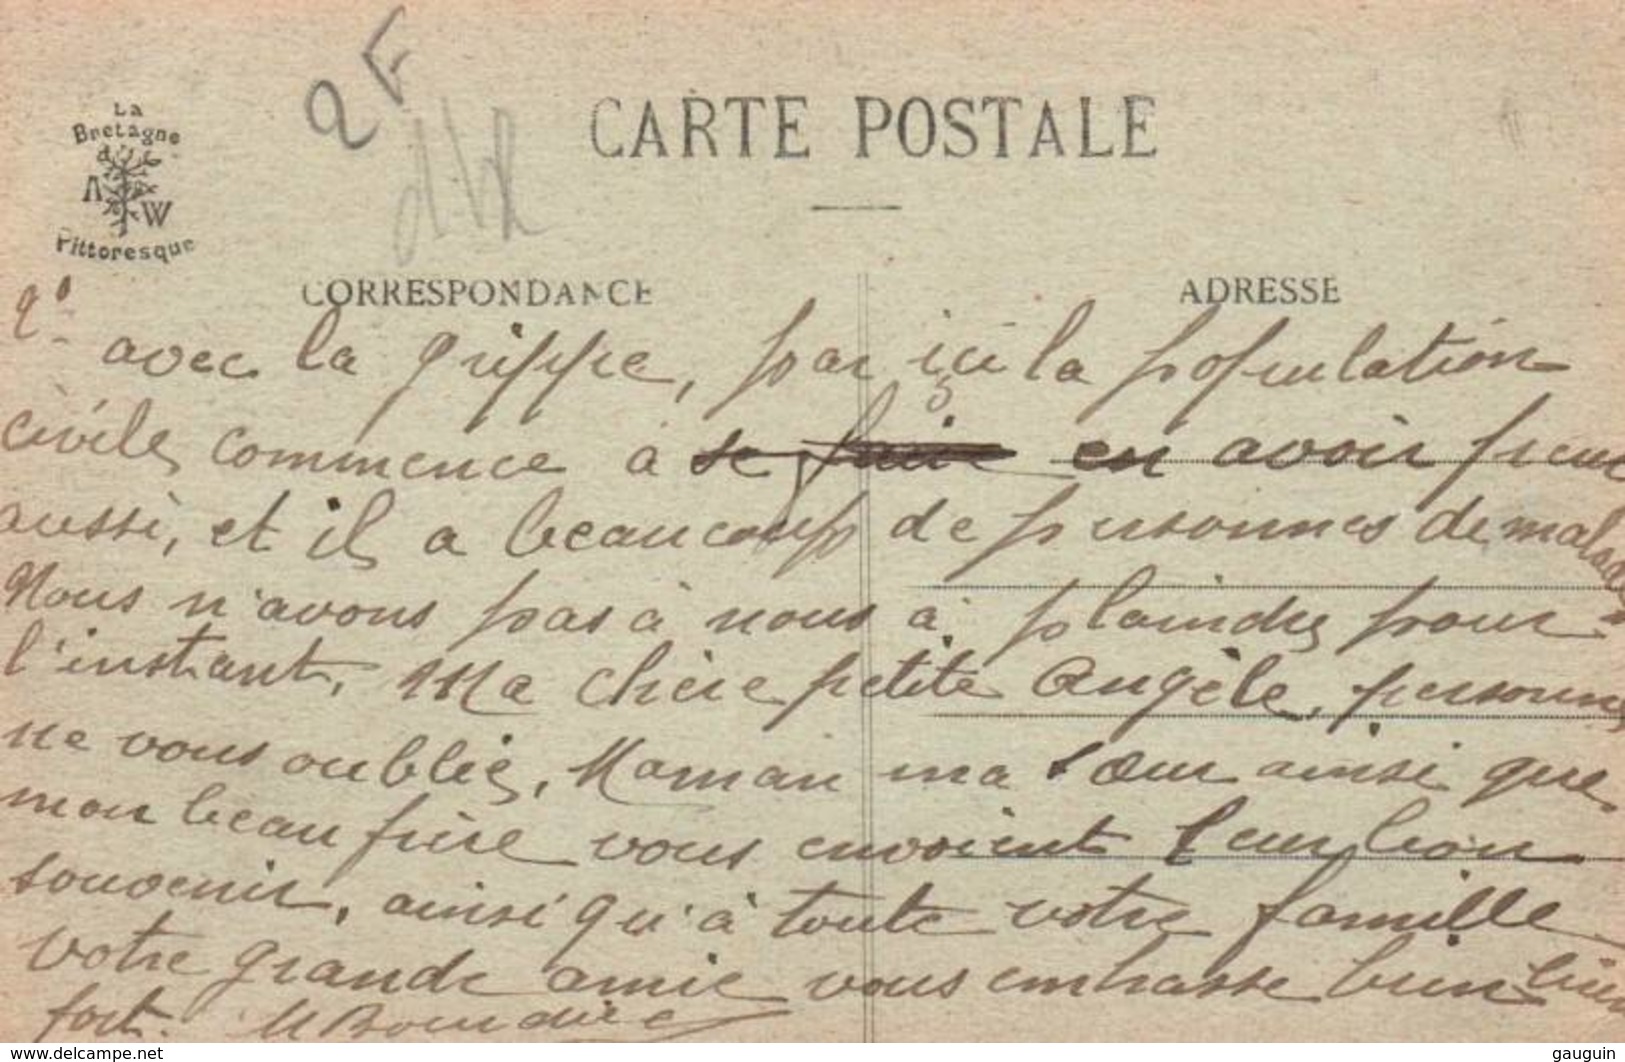 La
Bretagne
A W
Pittoresque
2F
CARTE POSTALE
CORRESPONDANCE
ADRESSE
2°
avec la grippe, par içi la population
civile commence à se faire en avoir peur
aussi, et il a beaucoup de personnes de malades
Nous n'avons pas à nous à plaindre pour
l'instant. Ma chère petite Angèle, personne
ne vous oublie, Maman ma sœur ainsi que
mon beau frère vous envoient leur bon
souvenir, ainsi qu'à toute votre famille
votre grande amie vous embrasse bien bien
fort. M Bourdiec
www.delcampe.net
gauguin